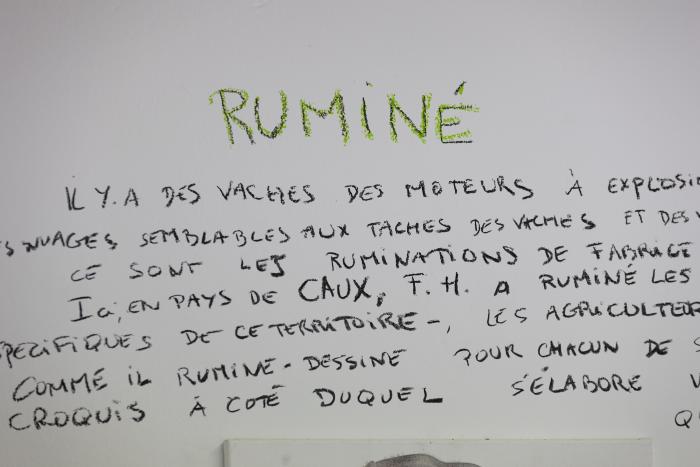 RUMINÉ
IL Y.A DES VACHES DES MOTEURS À EXPLOSI
S NUAGES SEMBLABLES AUX TACHES DES VACHES ET DES
CE SONT LES RUMINATIONS DE FABRICE
Ici, EN PAYS DE CAUX, F. H. A RUMINÉ LES
SPECIFIQUES DE CE TERRITOIRE-, LES AGRICULTEUR
COMME IL RUMINE-DESSINE POUR CHACUN DE S
CROQUIS À COTÉ DUQUEL S'ÉLABORE V
Q